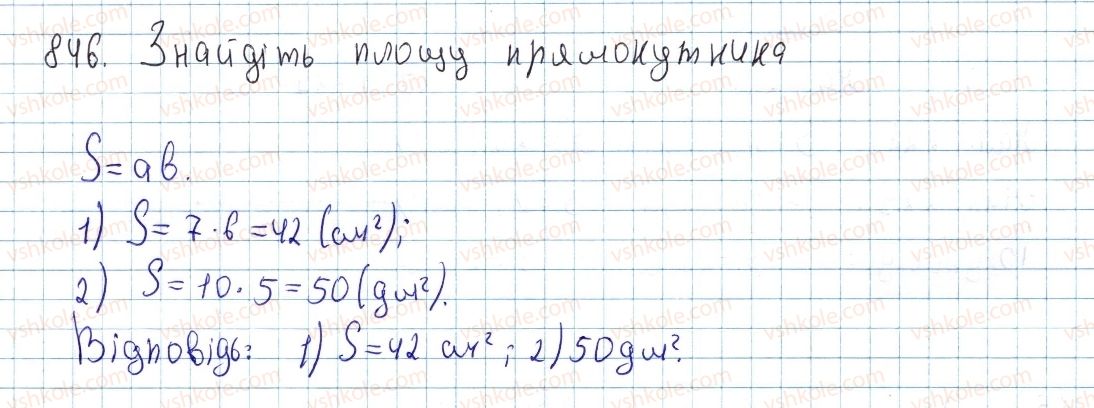 846. Знайдіть площу прямокутника
S = ab.
1) S = 7 · 6 = 42 (см²);
2) S = 10 · 5 = 50 (дм²).
Відповідь: 1) S = 42 см²; 2) 50 дм².
vshkole.com